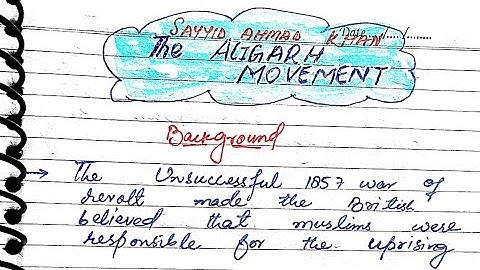 SAYYID AHMAD KHAN
Date .../.../...
The ALIGARH
MOVEMENT
Background
→ The Unsuccessful 1857 war of
revolt made the British
believed that muslims were
responsible for the uprising